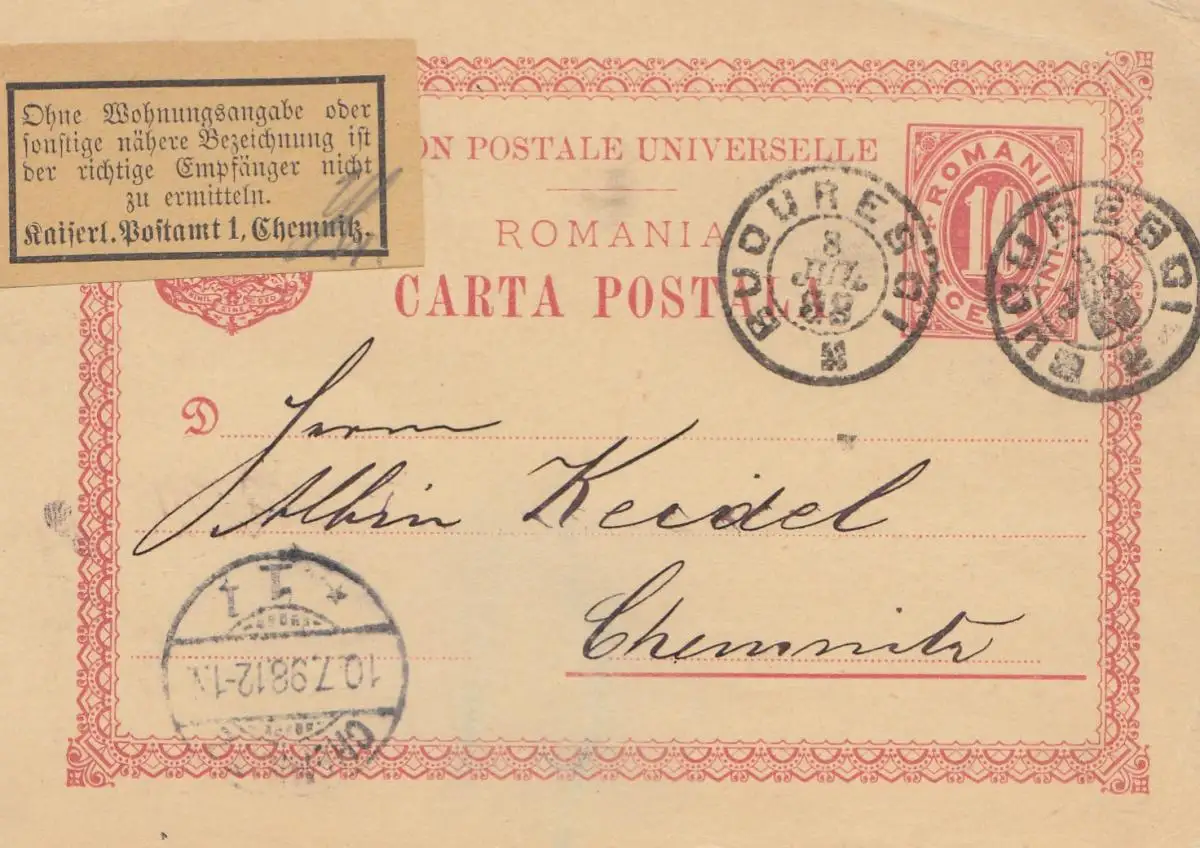 Ohne Wohnungsangabe oder
sonstige nähere Bezeichnung ist
der richtige Empfänger nicht
zu ermitteln.
Kaiserl. Postamt 1, Chemnitz.
ON POSTALE UNIVERSELLE
ROMANIA
CARTA POSTALĂ
NIHIL SINE DEO
ROMANIA
10
BUCURESCI
8
JUL
98
BUCURESCI
D Herrn
Albin Keidel
Chemnitz
10.7.98.12-1.